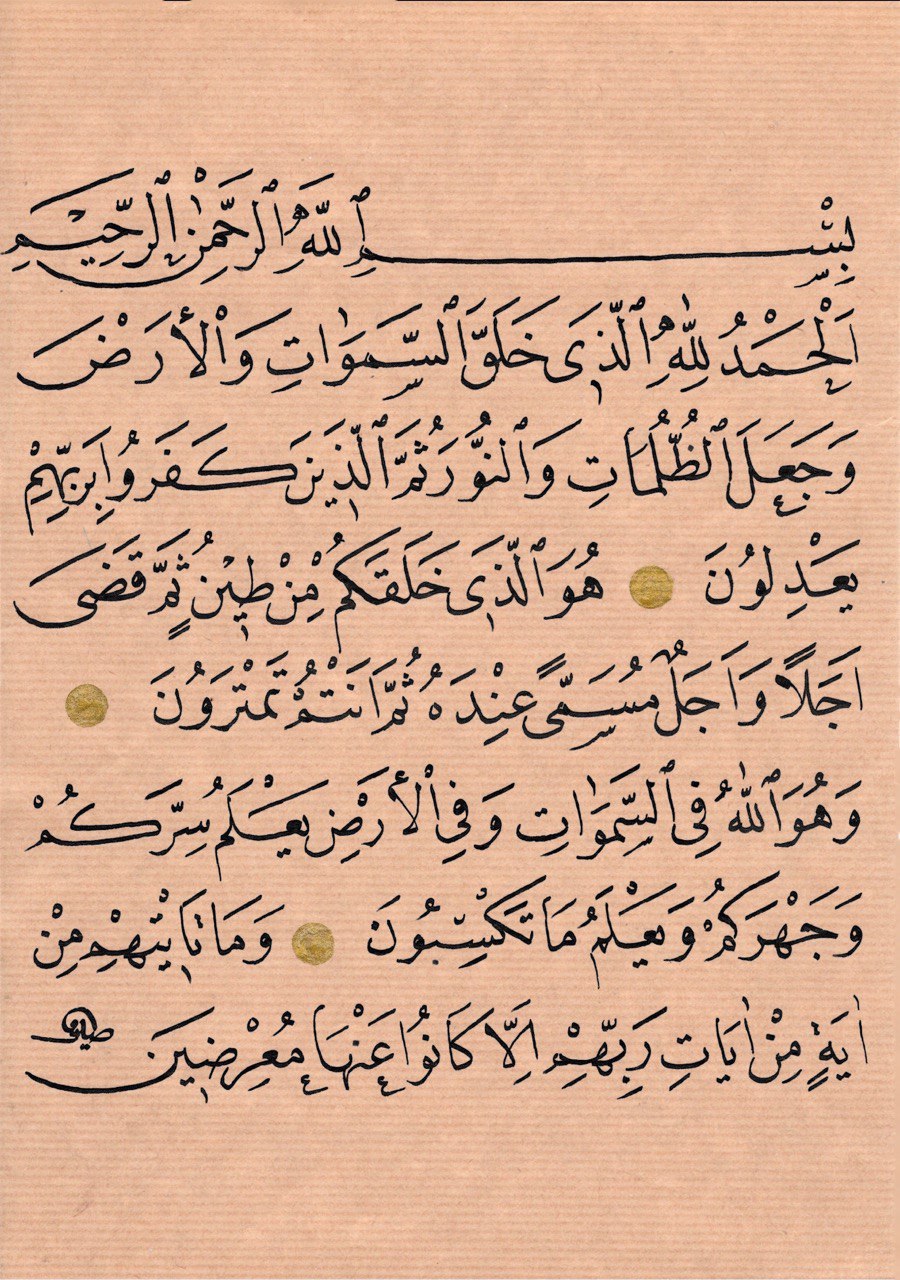 بِسْمِ اللّٰهِ الرَّحْمٰنِ الرَّحِيمِ
اَلْحَمْدُ لِلّٰهِ الَّذِى خَلَقَ السَّمٰوَاتِ وَالْأَرْضَ
وَجَعَلَ الظُّلُمَاتِ وَالنُّورَ ثُمَّ الَّذِينَ كَفَرُوا بِرَبِّهِمْ
يَعْدِلُونَ هُوَ الَّذِى خَلَقَكُمْ مِنْ طِينٍ ثُمَّ قَضَى
اَجَلًا وَاَجَلٌ مُسَمًّى عِنْدَهُ ثُمَّ اَنْتُمْ تَمْتَرُونَ
وَهُوَ اللّٰهُ فِى السَّمٰوَاتِ وَفِى الْأَرْضِ يَعْلَمُ سِرَّكُمْ
وَجَهْرَكُمْ وَيَعْلَمُ مَا تَكْسِبُونَ وَمَا تَاْتِيهِمْ مِنْ
اٰيَةٍ مِنْ اٰيَاتِ رَبِّهِمْ اِلَّا كَانُوا عَنْهَا مُعْرِضِينَ